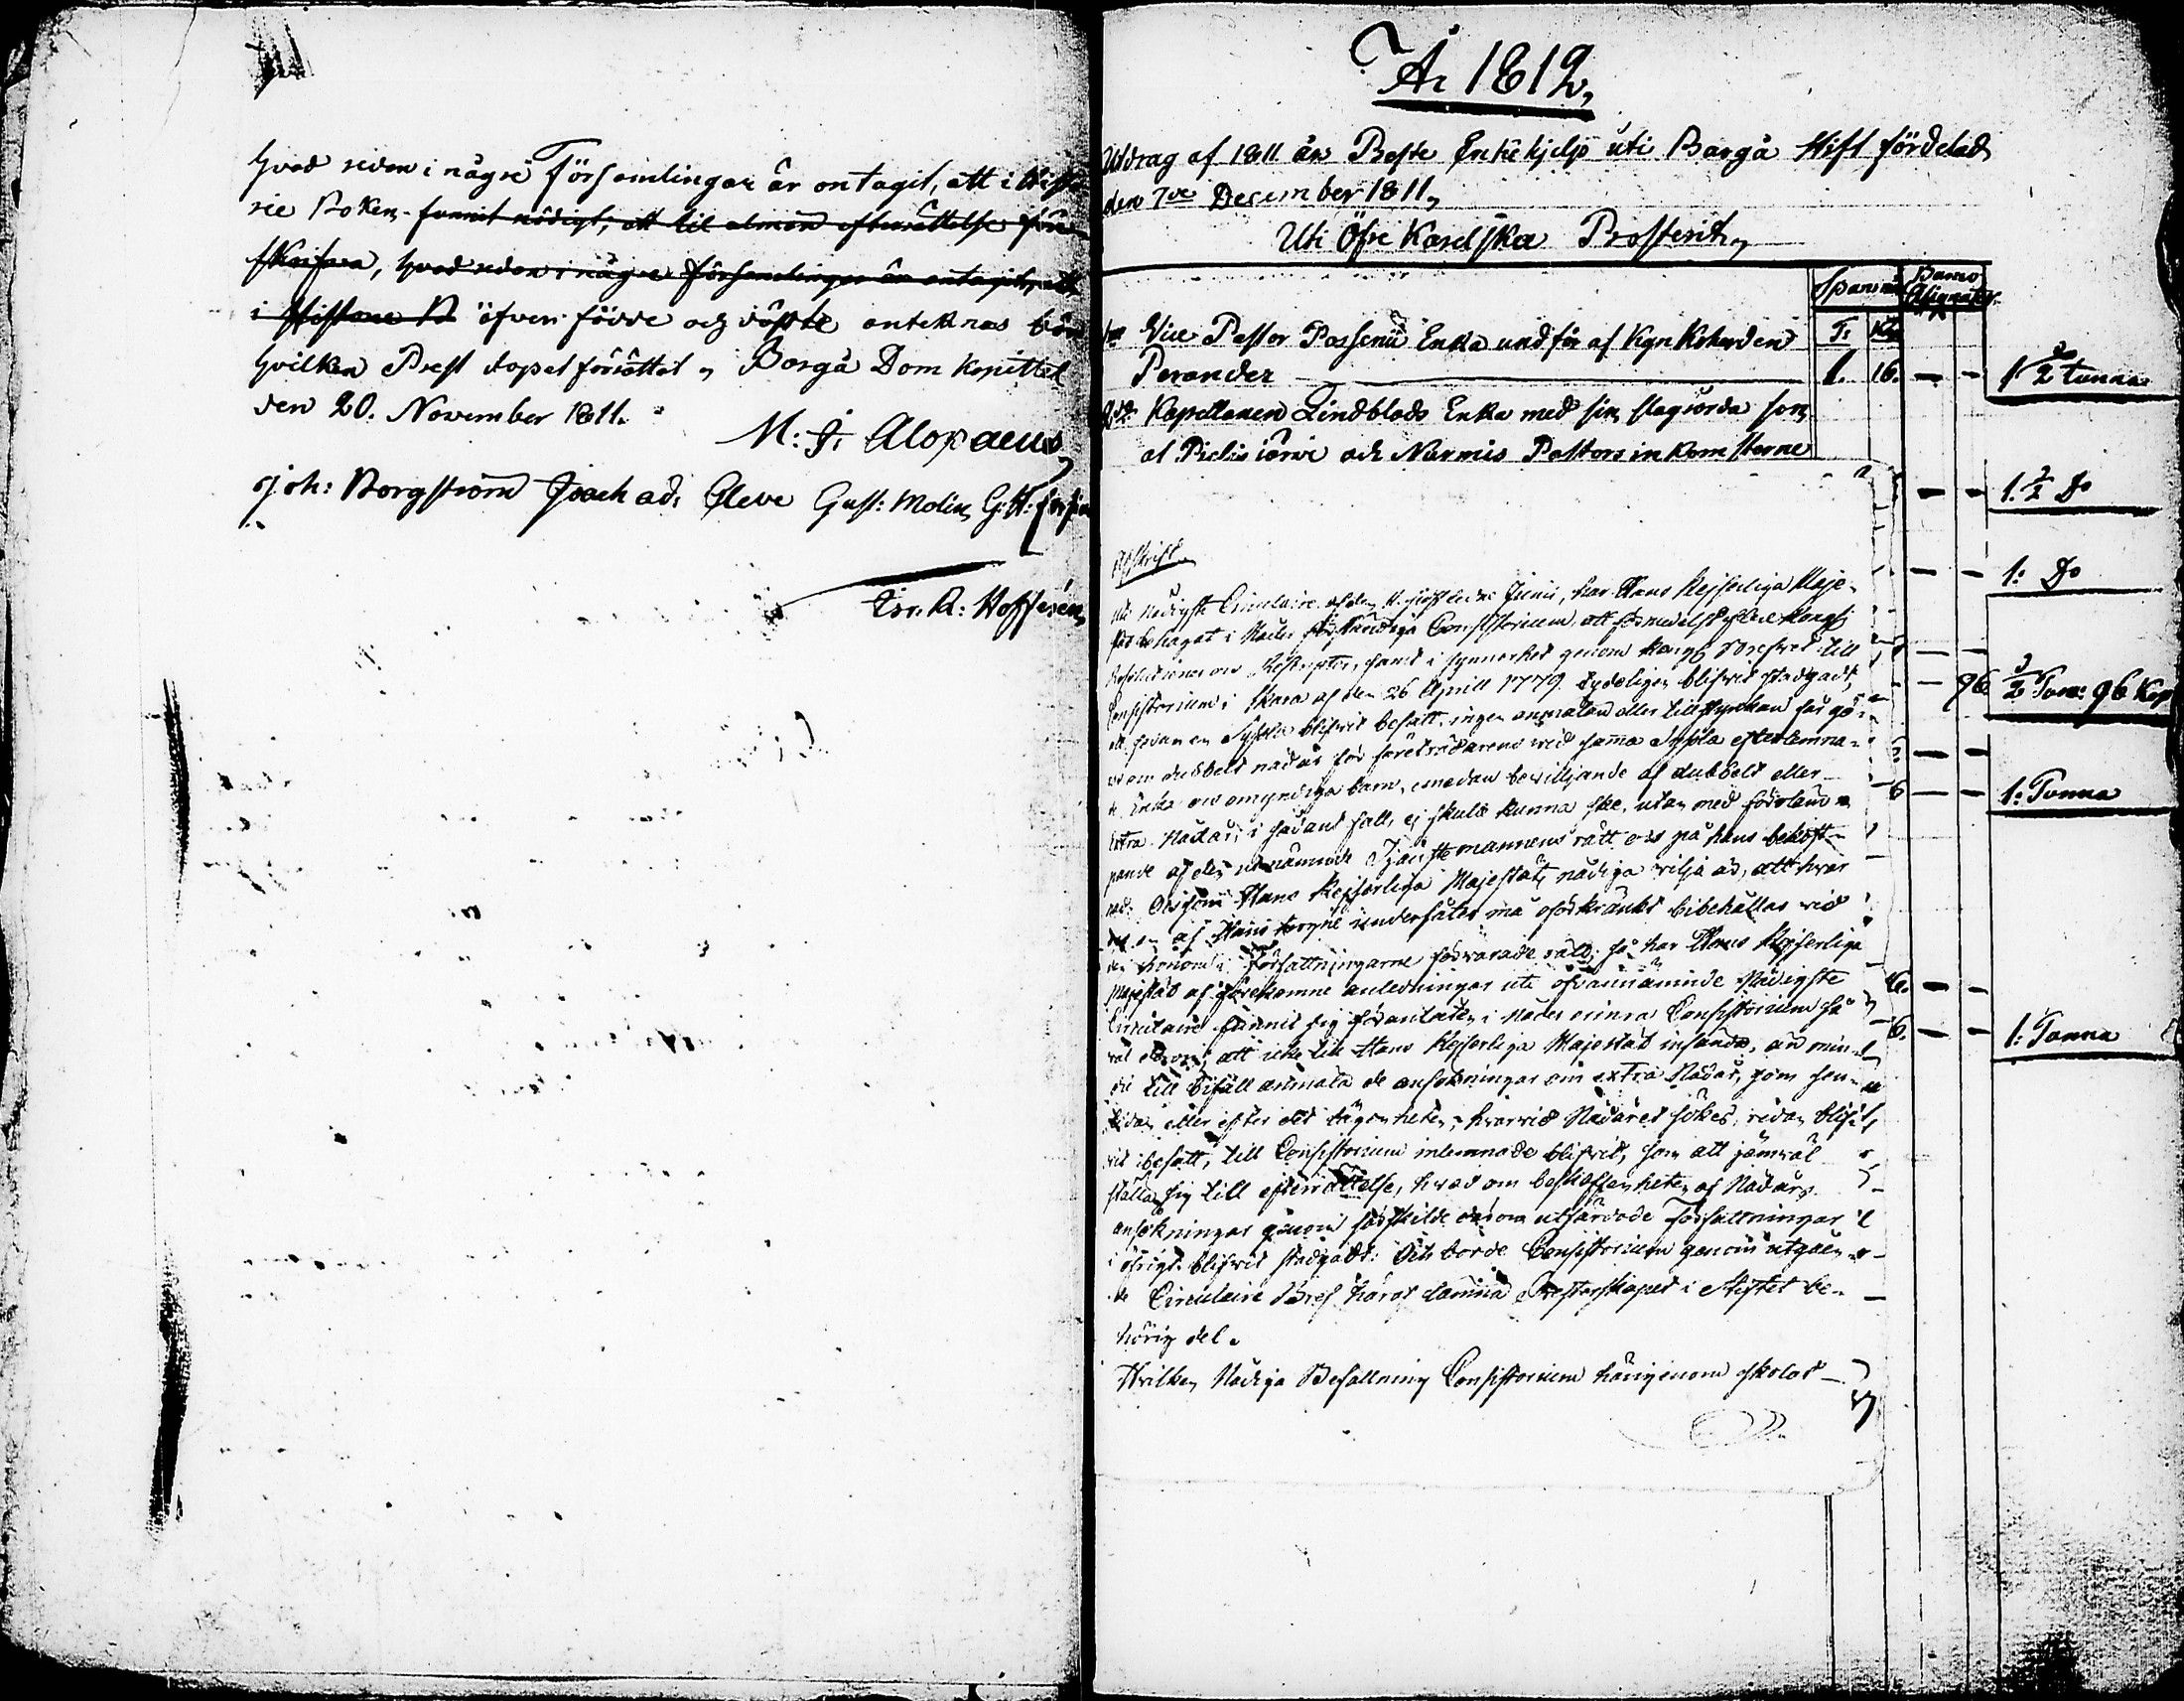 hvad redan i någre Församlingar är antagit, att i Histo
rie Boken funnit nödigt, att til almän efterrättelse före
skrifva, hvad redan i någre församlingar är antagit, att
i Historie B öfver födde och döpte anteknas bör
hvilken Prest dopet förrättat, Borgå Dom Kapittel
den 20. November 1811.
M: J: Alopaeus
Joh: Borgström Joach ad: Cleve Gust: Molin, G: H:
Isr. R: Hoffrén
År 1812,
Utdrag af 1811 års Preste Enkehjelp uti Borgå Stift fördelad
den 7de December 1811,
Uti Öfre Karelska Prosteriet,
Spanmål Banco Assignater
1mo Vice Pastor Enka undfår af Kyrkoherden T: K
Perander 1. 16. — — 1 1/2 tunna
2do Kapellanen Lindblads Enka med sin
af Pielis järvi och Nurmis Pastors inkomsterne
— — 1. 1/2 Do
— — 1: Do
— —
— 96 1/2 Tun: 96 Kop
— —
6 — — 1: Tunna
6. — —
6. — — 1: Tunna
Afskrift
Uti Nådigste Circulaire af den Junii, har Hans Kejserliga Maje-
behagat i Nåder Consistorium, att förmedelst Kongl
Resolutioner och Rescripter, samt i synnerhet genom Kongl Brefvet till
Consistorium i Skara af den 26 April 1779 tydeligen blifvit stadgadt,
att sedan en Syssla blifvit besatt, ingen anmälan eller tillstyrkan får gö-
ras om dubbelt nådår för företrädarens vid samma Syssla efterlemna-
de Enka och omyndiga barn, emedan beviljande af dubbelt eller
extra Nådår, i sådant fall, ej skulle kunna ske, utan med
af den utnämnde Tjänstemannens rätt och på hans bekost-
nad. Och som Hans Kejserliga Majestäts nådiga vilja är, att hvar
och en af Hans trogne undersåter må oförkränkt bibehållas vid
den honom i författningarne förvarade rätt; så har Hans Kejserliga
Majestät af förekomne anledningar uti ofvannämnde Nådigste
Circulaire funnit sig föranlåten i nåder erinra Consistorium så
väl om, att icke till Hans Kejserliga Majestät insända, än min-
dre till bifall anmäla de ansökningar om extra Nådår, som sen-
tida, eller efter det lägenheten, hvarvid Nådåret sökes, redan blif-
vit besatt, till Consistorium inlemnade blifvit, som att jämväl
ställa sig till efterrättelse, hvad om beskaffenheten af Nådårs
ansökningar genom särskilde derom utfärdade Författningar
i öfrigt blifvit stadgadt: Och borde Consistorium genom utgåen-
de Circulaire Bref härof lämna Presterskapet i Stiftet be-
hörig del.
Hvilken Nådiga Befallning Consistorium härigenom skolat